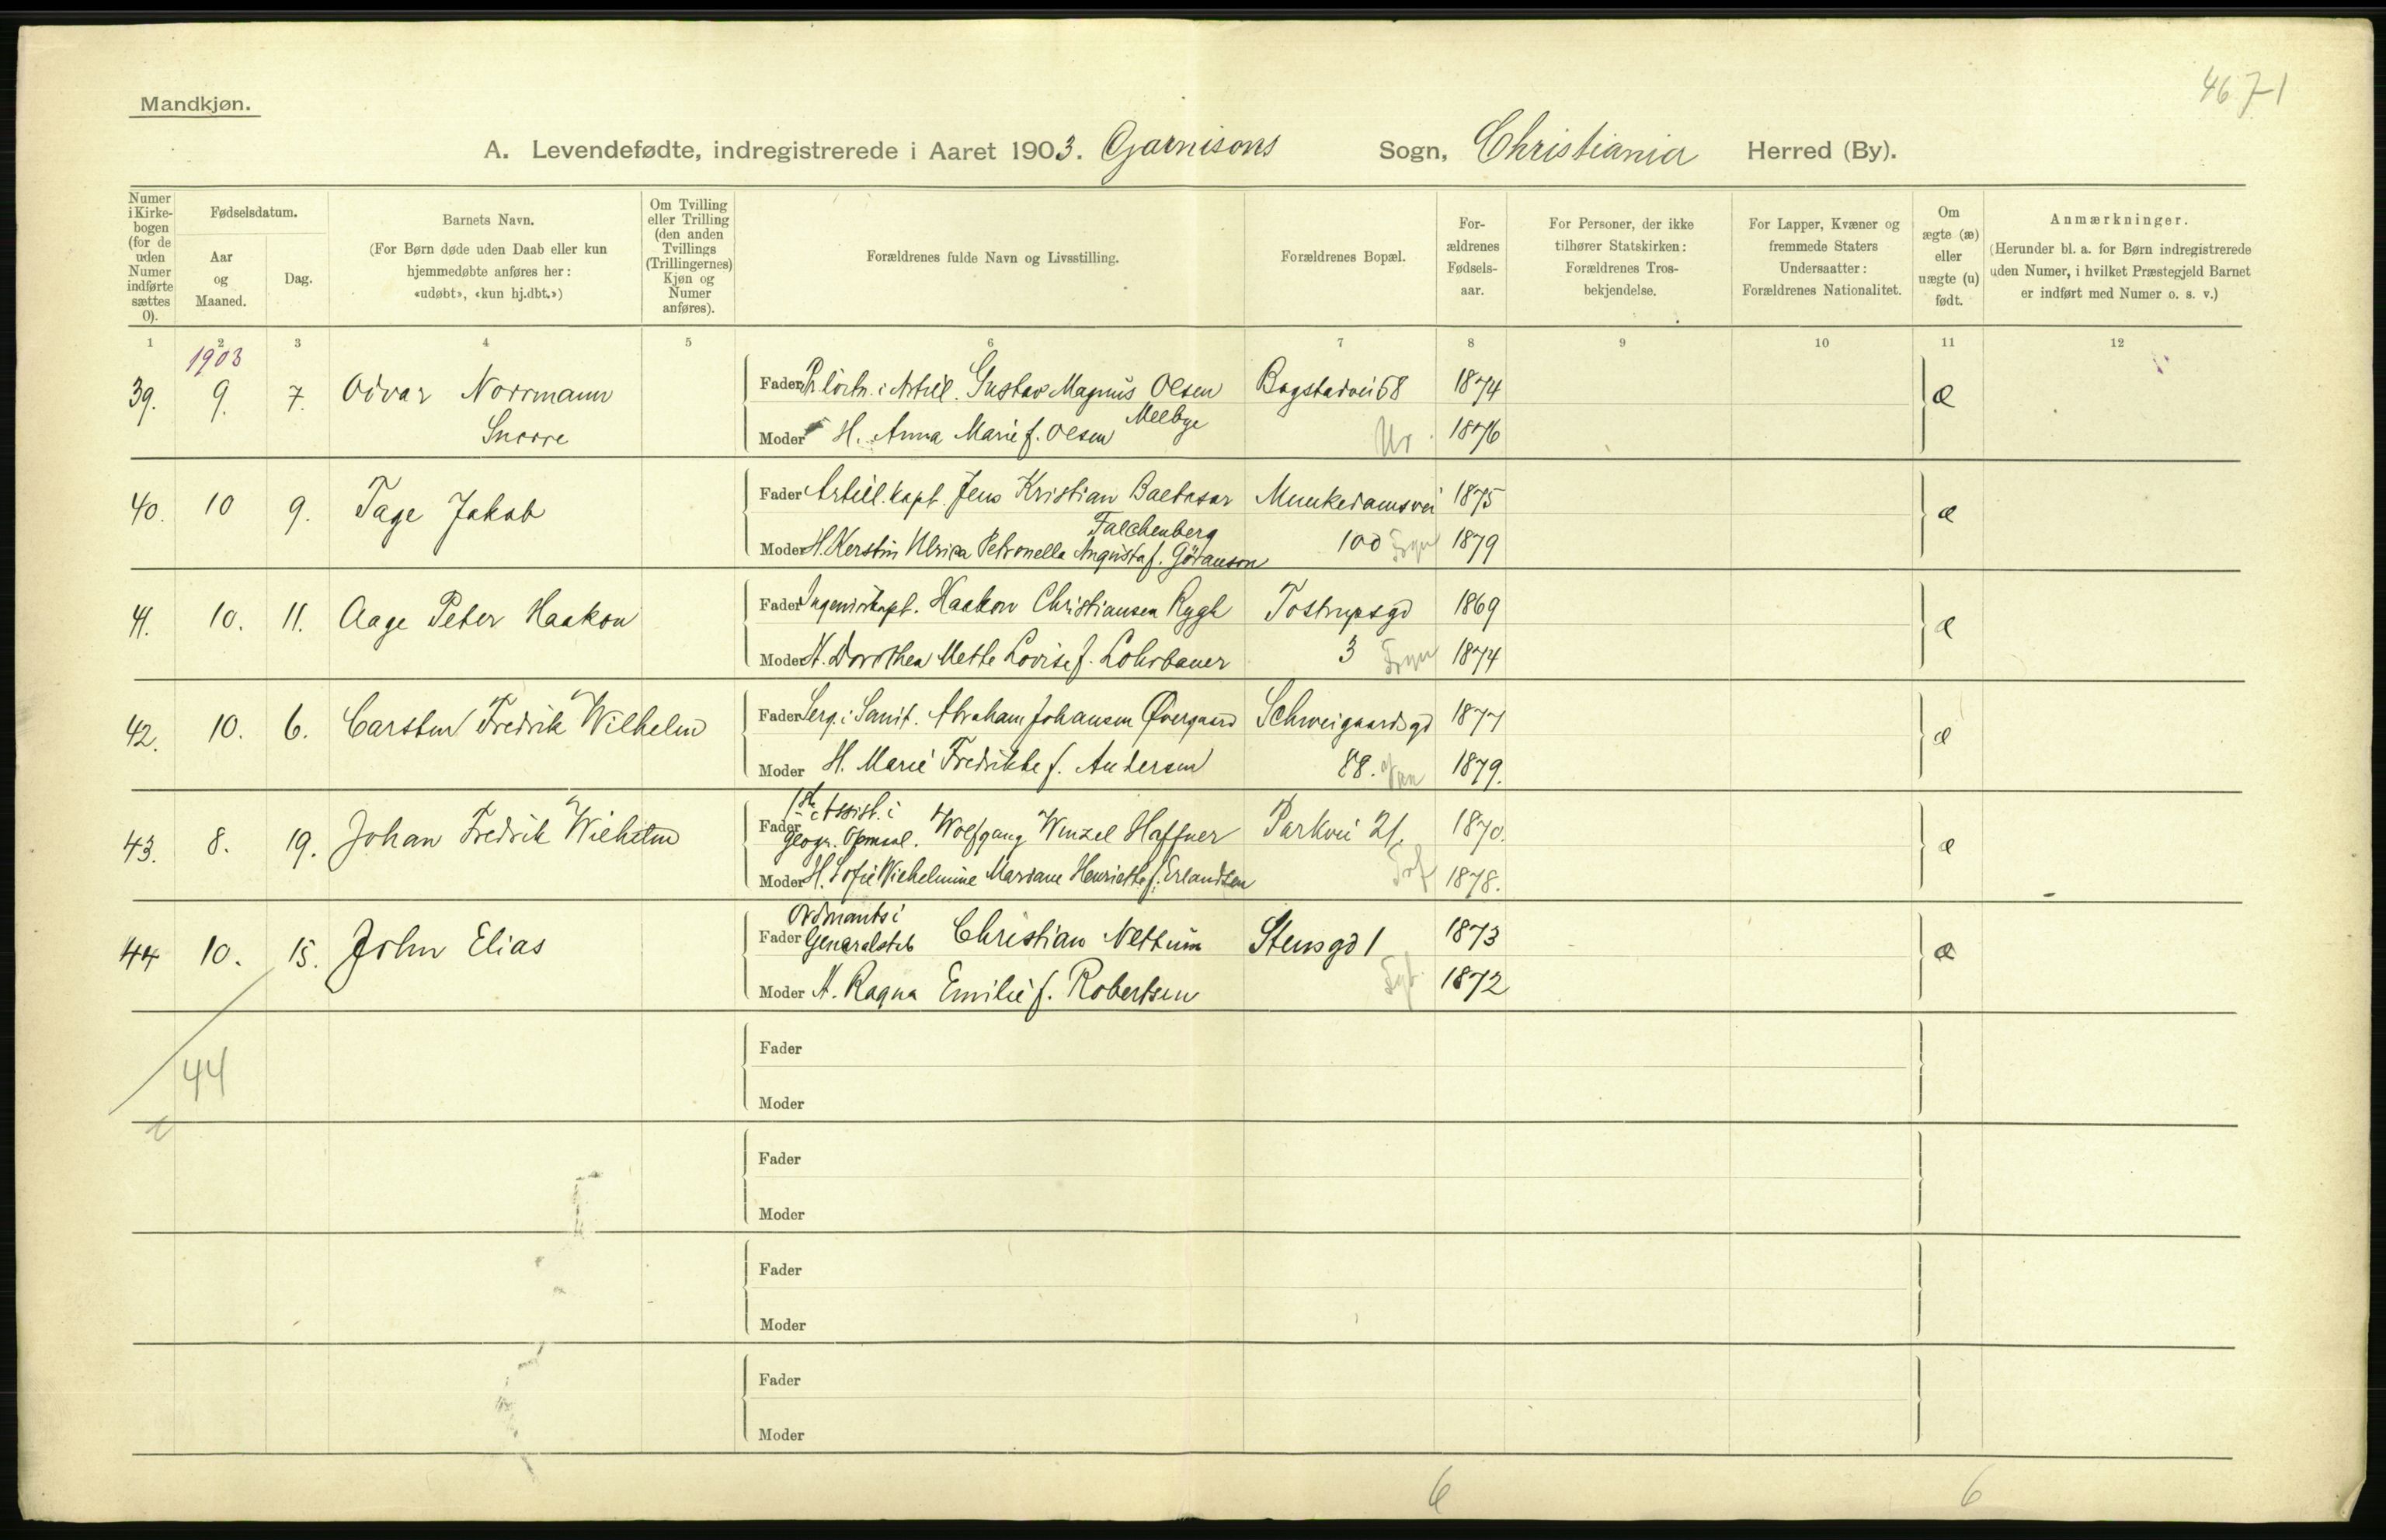 4671
Mandkjøn.
A. Levendefødte, indregistrerede i Aaret 1903. Garnisons Sogn, Christiania Herred (By).
Numer i Kirkebogen (for de uden Numer indførte sættes 0).
Fødselsdatum.
Aar og Maaned.
Dag.
Barnets Navn.
(For Børn døde uden Daab eller kun hjemmedøbte anføres her: «udøbt», «kun hj.dbt.»)
Om Tvilling eller Trilling (den anden Tvillings (Trillingernes) Kjøn og Numer anføres).
Forældrenes fulde Navn og Livsstilling.
Forældrenes Bopæl.
Forældrenes Fødselsaar.
For Personer, der ikke tilhører Statskirken: Forældrenes Trosbekjendelse.
For Lapper, Kvæner og fremmede Staters Undersaatter: Forældrenes Nationalitet.
Om ægte (æ) eller uægte (u) født.
Anmærkninger.
(Herunder bl. a. for Børn indregistrerede uden Numer, i hvilket Præstegjeld Barnet er indført med Numer o. s. v.)
1 2 3 4 5 6 7 8 9 10 11 12
1903
39. 9. 7. Oivar Norrmann Fader Pr.löitn. i Artill. Gustav Magnus Olsen Bogstadvei 68 1874 æ
Snorre Melbye
Moder H. Anna Marie f. Olsen Ur 1876
40. 10 9. Tage Jakob Fader Artill. kapt. Jens Kristian Baltasar Munkedamsvei 1875 æ
Falchenberg
Moder H. Kerstin Ulrica Petronella Augusta f. Göranson 100 1879
41. 10. 11. Aage Peter Haakon Fader Ingeniörkapt. Haakon Christiansen Rygh Tostrupsgd 1869 æ
Moder H. Dorothea Mette Lovise f. Lohrbauer 3 1874
42. 10. 6. Carsten Fredrik Wilhelm Fader Serg. i Sanit. Abraham Johansen Øvergaard Schweigaardsgd 1877 æ
Moder H. Marie Fredrikke f. Andersen 88. 1879.
1ste Assist. i
43. 8. 19. Johan Fredrik Wilhelm Fader geogr. Opmaal. Wolfgang Wenzel Haffner Parkvei 21. 1870. æ
Moder H. Sofie Wilhelmine Mariane Henriette f. Erlandsen 1878.
Ordonants i
44 10. 15. John Elias Fader Generalstab Christian Nettum Stensgd 1 1873 æ
Moder H. Ragna Emilie f. Robertsen 1872
Fader
44
Moder
Fader
Moder
Fader
Moder
Fader
Moder
6 6